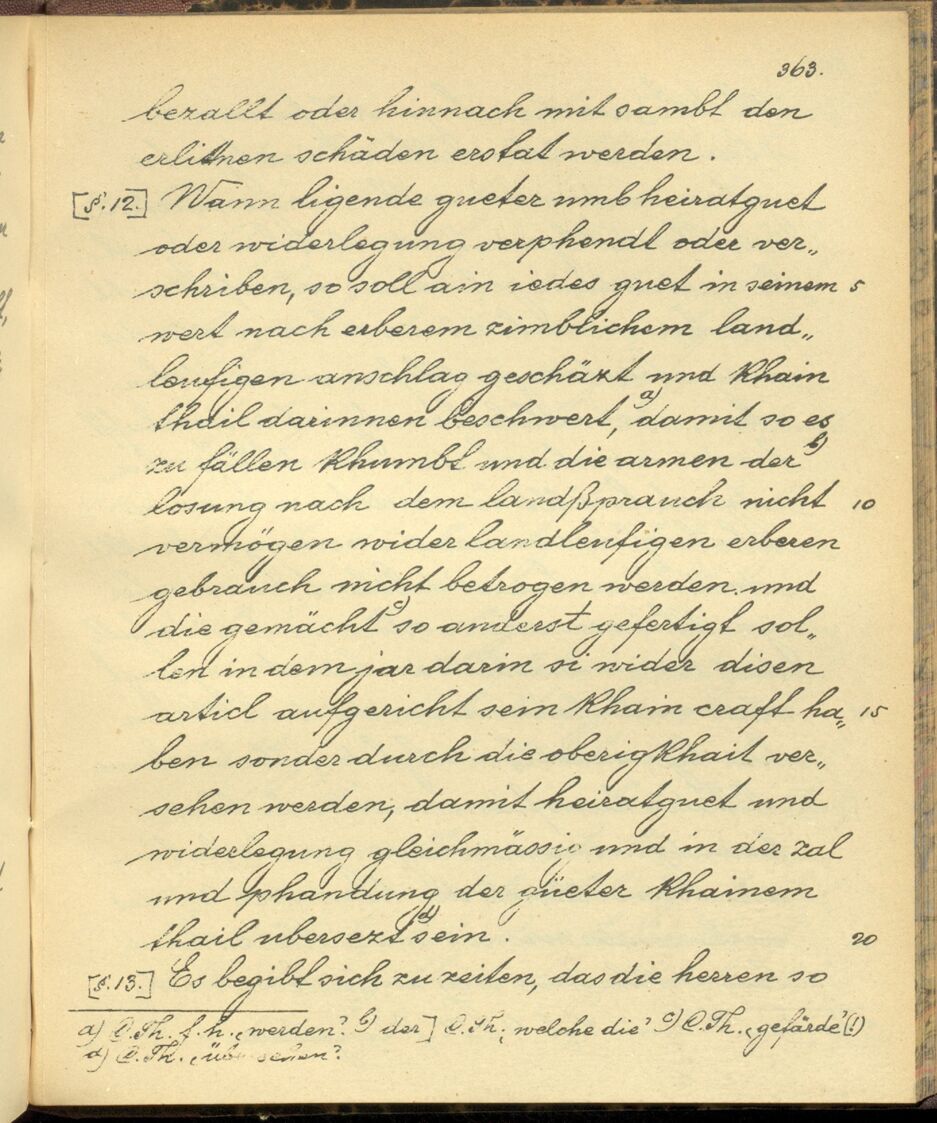 363.
bezallt oder hinnach mit sambt den
erlitnen schäden erstat werden.
[§.12.] Wänn ligende gueter umb heiratguet
oder widerlegung verphendt oder ver„
schriben, so soll ain iedes guet in seinem 5
wert nach erberem zimblichem land„
leufigen anschlag geschäzt und khain
thail darinnen beschwert,a) damit so es
zu fällen khumbt und die armen derb)
losung nach dem landßprauch nicht 10
vermögen wider landleufigen erberen
gebrauch nicht betrogen werden. und
die gemächtc) so anderst gefertigt sol„
len in dem jar darin si wider disen
articl aufgericht sein khain craft ha„ 15
ben sonder durch die oberigkhait ver„
sehen werden, damit heiratguet und
widerlegung gleichmässig und in der zal
und phandung der güeter khainem
thail ubersezt d) sein. 20
[§.13.] Es begibt sich zu zeiten, das die herren so
a) C.Th. f. h. ‚werden'. b) der] C.Th. ‚welche die' c) C.Th. ‚gefärde' (!)
d) C.Th.